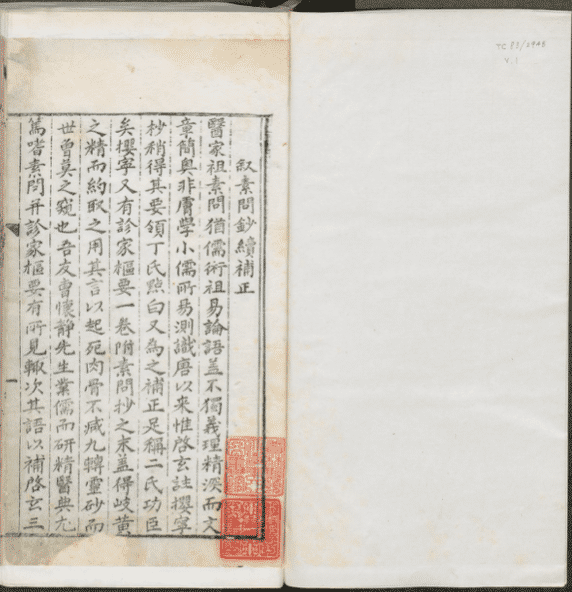 叙素問鈔續補正
醫家祖素問猶儒術祖易論語盖不獨義理精深而文
章簡奥非膚學小儒所易測識唐以来惟啓玄註攖寧
抄稍得其要領丁氏㸃白又為之補正足稱二氏功臣
矣攖寧又有診家樞要一卷附素問抄之末盖得岐黄
之精而約取之用其言以起死肉骨不减九轉靈砂而
世曾莫之窺也吾友曾懷静先生業儒而研精醫典尤
篤嗜素問并診家樞要有所見輙次其語以補啓玄三
一
v.1